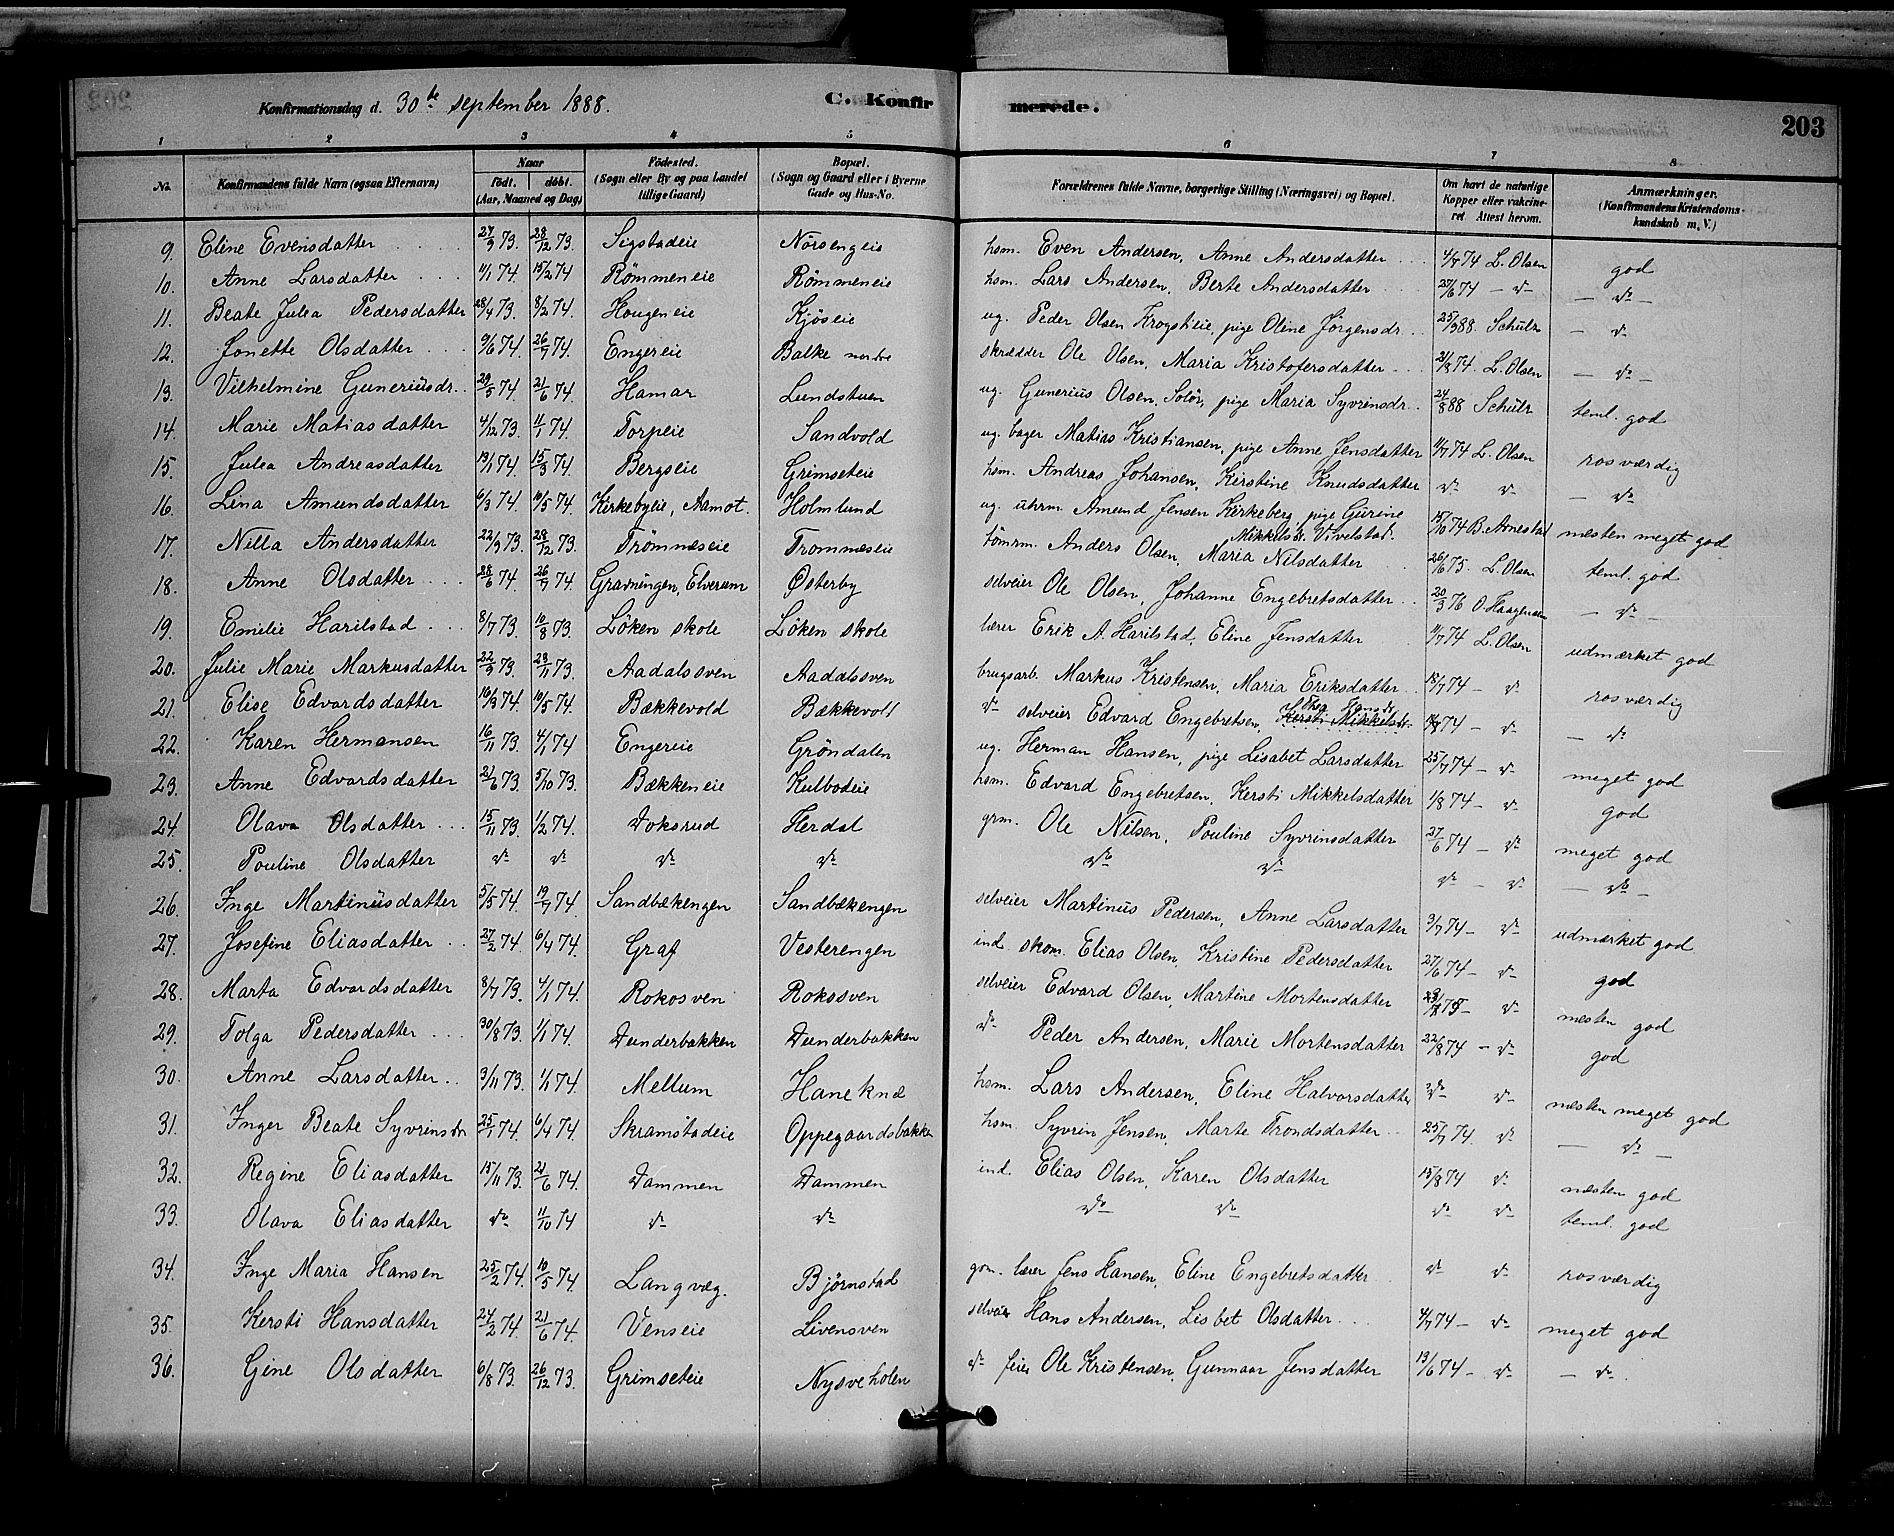 Konfirmationsdag d. 30te september 1888. C. Konfirmerede. 203
1 2 3 4 5 6 7 8
No. Konfirmandens fulde Navn (ogsaa Efternavn) Naar født. døbt. (Aar, Maaned og Dag) Födested. (Sogn eller By og paa Landet tillige Gaard) Bopæl. (Sogn og Gaard eller i Byerne Gade og Hus-No. Forældrenes fulde Navne, borgerlige Stilling (Næringsvei) og Bopæl. Om havt de naturlige Kopper eller vakcineret Attest herom. Anmærkninger, (Konfirmandens Kristendomskundskab m. V.)
9. Eline Evensdatter 27/9 73. 28/12 73. Sigstadeie Norsengeie hsm. Even Andersen, Anne Andersdatter 4/8 74 L. Olsen god
10. Anne Larsdatter 11/1 74. 15/2 74 Rømmeneie Rømmeneie hsm. Lars Andersen, Berte Andersdatter 27/6 74 — do — — do —
11. Beate Julea Pedersdatter 28/4 73. 8/2 74. Hougeneie Kjøseie ug. Peder Olsen Krogstieie, pige Oline Jørgensdr. 25/9 88 Schulz — do
12. Jonette Olsdatter 9/6 74. 26/7 74. Engereie Balke nordre skrædder Ole Olsen, Maria Kristofersdatter 21/8 74. L. Olsen — do —
13. Vilhelmine Guneriusdr. 29/5 74. 21/6 74. Hamar Lundstuen ug. Gunerius Olsen, Solør, pige Maria Syvrinsdr. 24/8 88 Schulz teml. god
14. Marie Matiasdatter 4/12 73. 11/1 74. Torpeie Sandvold ug. bager Matias Kristiansen, pige Anne Jensdatter 11/7 74 L. Olsen rosværdig
15. Julea Andreasdatter 13/1 74. 15/3 74. Bergseie Grimseteie hsm. Andreas Johansen, Kirstine Knudsdatter do do — do
16. Lina Amundsdatter 6/3 74. 10/5 74. Kirkebyeie, Aamot. Holmlund ug. uhrm. Amund Jensen Kirkeberg, pige Gurine Mikkelsdr. Vivelstad. 15/10 74 B. Arnestad næsten meget god
17. Nilla Andersdatter 22/9 73. 28/12 73. Trømnæseie Tromnæseie tømrm. Anders Olsen, Maria Nilsdatter 26/6 75. L. Olsen teml. god
18. Anne Olsdatter 28/6 74 26/7 74 Gravningen, Elverum Østerby selveier Ole Olsen, Johanne Engebretsdatter 20/3 76 O. Haagensen — do —
19. Emilie Harilstad 8/7 73. 10/8 73. Løken skole Løken skole lærer Erik A. Harilstad, Eline Jensdatter 11/7 74 L. Olsen udmærket god
20. Julie Marie Markusdatter 22/9 73. 28/11 73. Aadalssven Aadalssven brugsarb. Markus Kristensen, Maria Eriksdatter 18/7 74 — do rosværdig
21. Elise Edvardsdatter 16/3 74. 10/5 74. Bækkevold Bækkevoll do selveier Edvard Engebretsen, Kersti Mikkelsdr. Thea Hansdr. 74 — do — do
22. Karen Hermansen 16/11 73. 4/1 74 Engereie Grøndalen ug. Herman Hansen, pige Lisabet Larsdatter 25/7 74 — do meget god
23. Anne Edvardsdatter 21/6 73 5/10 73. Bækkeneie Kulbodeie hsm. Edvard Engebretsen, Kersti Mikkelsdatter 1/8 74 — do god
24. Olava Olsdatter 15/11 73. 1/2 74. Doksrud Herdal grm. Ole Nilsen, Pouline Syvrinsdatter 27/6 74 — do meget god
25. Pouline Olsdatter do do do do do do do — do — do —
26. Inge Martinusdatter 5/5 74. 19/7 74. Sandbækengen Sandbækengen selveier Martinus Pedersen, Anne Larsdatter 3/7 74 — do udmærket god
27. Josefine Eliasdatter 27/2 74. 6/4 74. Graf Vesterengen ind. skom. Elias Olsen Kristine Pedersdatter 27/6 74 — do god
28. Marta Edvardsdatter 8/7 73. 4/1 74. Rokosven Rokosven selveier Edvard Olsen, Martine Mortensdatter 75 — do næsten god
29. Tolga Pedersdatter 30/8 73. 1/1 74. Dunderbakken Dunderbakken do Peder Andersen, Marie Mortensdatter 22/8 74 — do god
30. Anne Larsdatter 3/11 73. 1/1 74. Mellum Haneknæ hsm. Lars Andersen, Eline Halvorsdatter do do næsten meget god
31. Inger Beate Syvrinsdr 25/1 74. 6/4 74. Skramstadeie Oppegaardsbakken hsm. Syvrin Jensen, Marte Trondsdatter 25/7 74. do — do —
32. Regine Eliasdatter 15/11 73. 21/6 74. Dammen Dammen ind. Elias Olsen, Karen Olsdatter 15/8 74 do næsten god
33. Olava Eliasdatter do 11/10 74 do do do do do do teml. god
34. Inge Maria Hansen 25/2 74. 10/5 74. Langvæg. Bjørnstad gom. lærer Jens Hansen, Eline Engebretsdatter do do rosværdig
35. Kersti Hansdatter 24/2 74. 21/6 74. Venseie Livensven selveier Hans Andersen, Lisbet Olsdatter 4/7 74 — do meget god
36. Gine Olsdatter 6/8 73. 26/12 73. Grimseteie Nysveholen do feier Ole Kristensen, Gunnaar Jensdatter 13/6 74 — do — do.